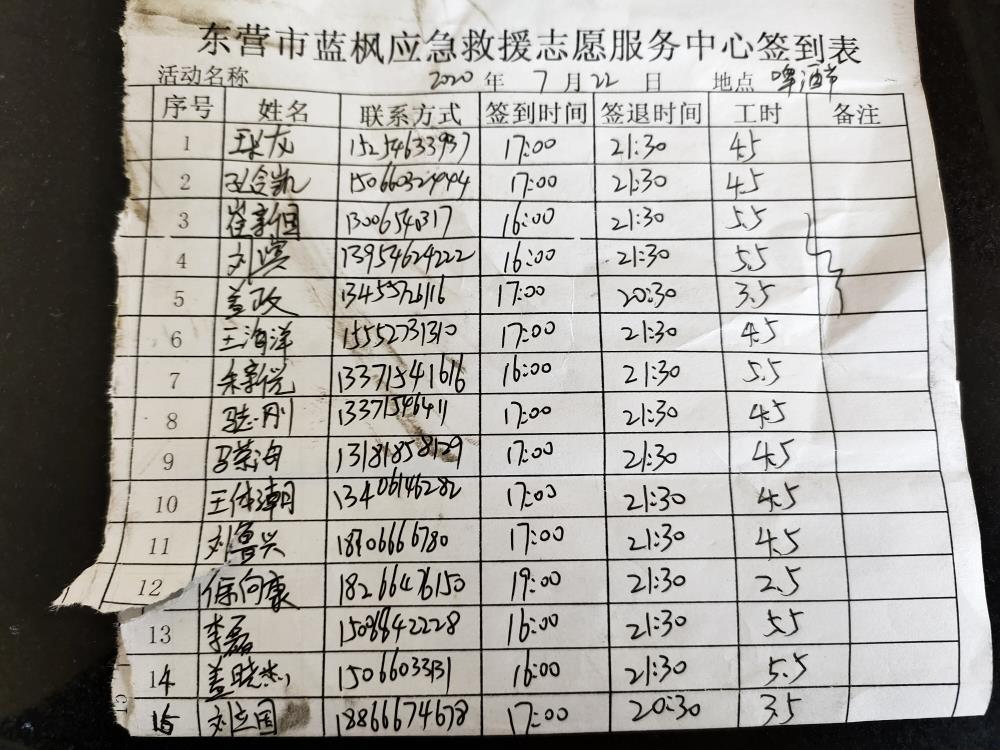 东营市蓝枫应急救援志愿服务中心签到表
活动名称 2020 年 7 月 22 日 地点 啤酒节
序号 姓名 联系方式 签到时间 签退时间 工时 备注
1 15254633937 17:00 21:30 4.5
2 孙含凯 15066032444 17:00 21:30 4.5
3 崔新国 13006540317 16:00 21:30 5.5
4 刘滨 13954624222 16:00 21:30 5.5
5 盖政 13455726116 17:00 20:30 3.5
6 王海洋 15552731310 17:00 21:30 4.5
7 朱新悦 13371541616 16:00 21:30 5.5
8 骆刚 13371546411 17:00 21:30 4.5
9 马荣海 13181858129 17:00 21:30 4.5
10 王伟潮 13406146282 17:00 21:30 4.5
11 刘鲁兴 18706666780 17:00 21:30 4.5
12 徐向康 18266476150 19:00 21:30 2.5
13 李磊 16:00 21:30 5.5
14 盖晓杰 16:00 21:30 5.5
15 刘立国 18866674678 17:00 20:30 3.5